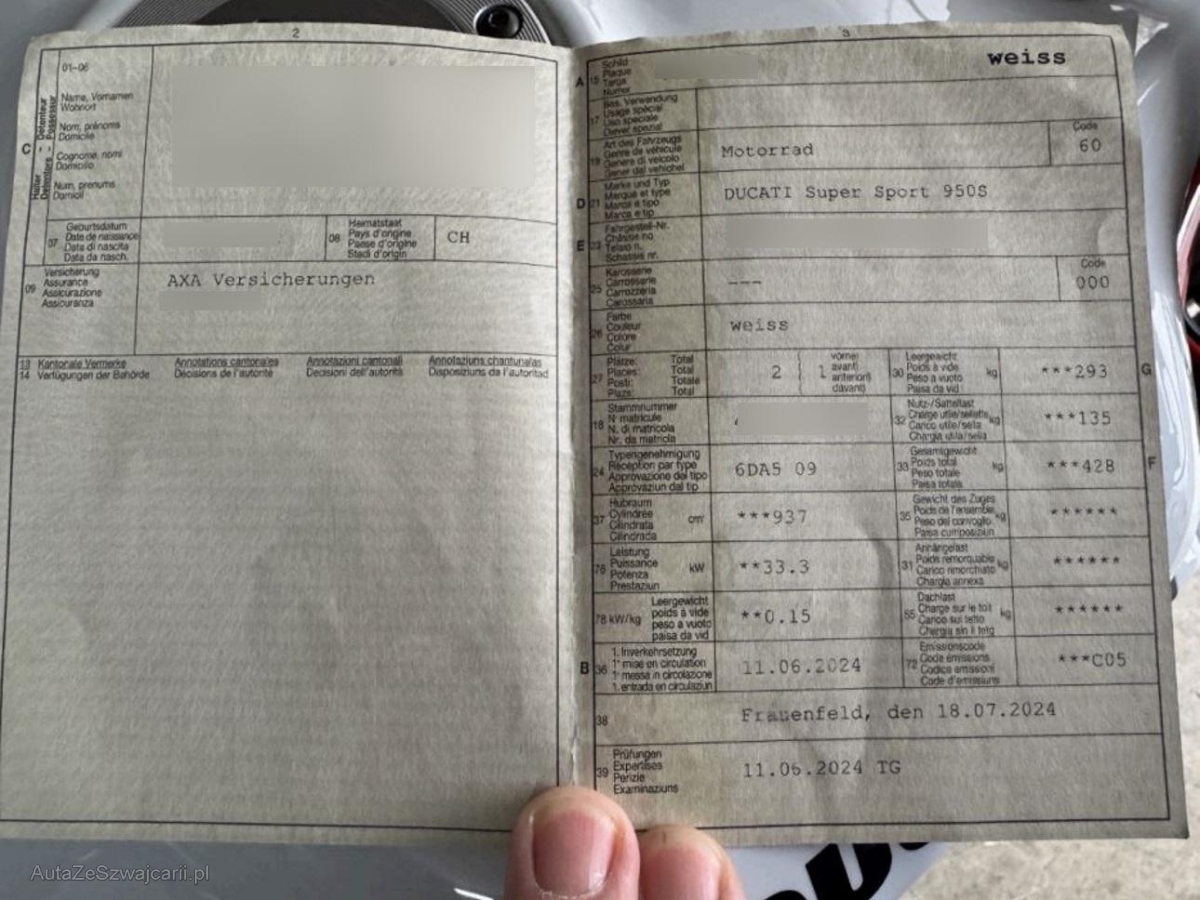 2
01-06
C
Halter
Détenteur
Detentore
Possessur
Name, Vornamen
Wohnort
Nom, prénoms
Domicile
Cognome, nomi
Domicilio
Num, prenums
Domicil
07
Geburtsdatum
Date de naissance
Data di nascita
Data da nasch.
08
Heimatstaat
Pays d'origine
Paese d'origine
Stadi d'origin
CH
09
Versicherung
Assurance
Assicurazione
Assicuranza
AXA Versicherungen
13 Kantonale Vermerke Annotations cantonales Annotazioni cantonali Annotaziuns chantunalas
14 Verfügungen der Behörde Décisions de l'autorité Decisioni dell'autorità Disposiziuns da l'autoritad
3
A 15
Schild
Plaque
Targa
Numer
weiss
17
Bes. Verwendung
Usage spécial
Uso speciale
Diever spezial
19
Art des Fahrzeugs
Genre de véhicule
Genere di veicolo
Gener dal vehichel
Motorrad
Code
60
D 21
Marke und Typ
Marque et type
Marca e tipo
Marca e tip
DUCATI Super Sport 950S
E 23
Fahrgestell-Nr.
Châssis no
Telaio n.
Schassis nr.
25
Karosserie
Carrosserie
Carrozzeria
Carossaria
---
Code
000
26
Farbe
Couleur
Colore
Colur
weiss
27
Plätze: Total
Places: Total
Posti: Totale
Plazs: Total
2
1
vorne
avant
anteriori
davant
30
Leergewicht
Poids à vide
Peso a vuoto
Paisa da vid
kg
***293
G
18
Stammnummer
N° matricule
N. di matricola
Nr. da matricla
32
Nutz-/Sattellast
Charge utile/sellette
Carico utile/sella
Chargia utila/sella
kg
***135
24
Typengenehmigung
Réception par type
Approvazione del tipo
Approvaziun dal tip
6DA5 09
33
Gesamtgewicht
Poids total
Peso totale
Paisa totala
kg
***428
F
37
Hubraum
Cylindrée
Cilindrata
Cilindrada
cm³
***937
35
Gewicht des Zuges
Poids de l'ensemble
Peso del convoglio
Paisa cumposiziun
kg
******
76
Leistung
Puissance
Potenza
Prestaziun
kW
**33.3
31
Anhängelast
Poids remorquable
Carico rimorchiato
Chargia annexa
kg
******
78 kW/kg
Leergewicht
poids à vide
peso a vuoto
paisa da vid
**0.15
55
Dachlast
Charge sur le toit
Carico sul tetto
Chargia sin il tetg
kg
******
B 36
1. Inverkehrsetzung
1re mise en circulation
1a messa in circolazione
1. entrada en circulaziun
11.06.2024
72
Emissionscode
Code émissions
Codice emissioni
Code d'emissiuns
***C05
38
Frauenfeld, den 18.07.2024
39
Prüfungen
Expertises
Perizie
Examinaziuns
11.06.2024 TG
AutaZeSzwajcarii.pl